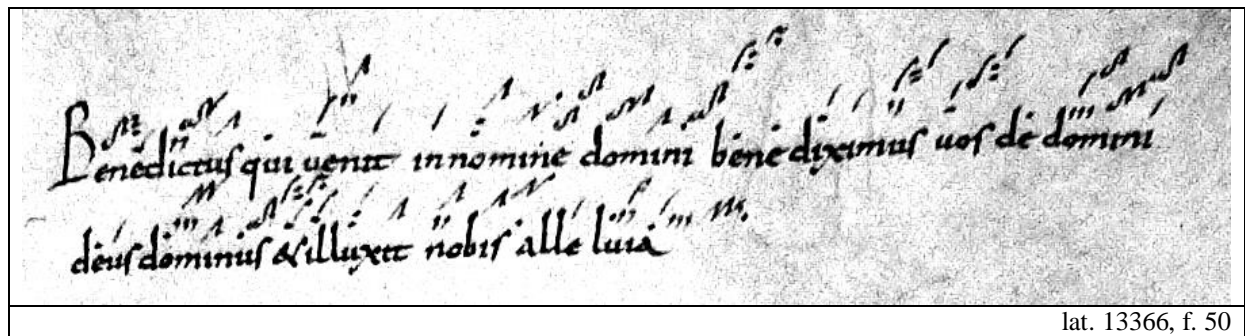 Benedictus qui uenit in nomine domini benediximus uos de domini
deus dominus & illuxit nobis alleluia
lat. 13366, f. 50